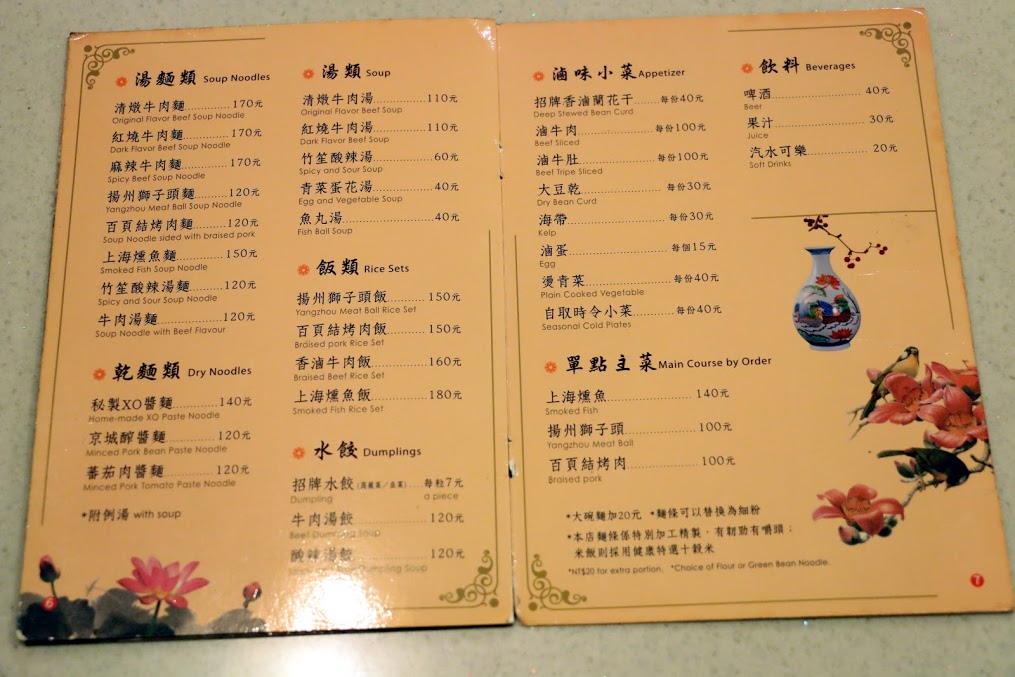 湯麵類 Soup Noodles
清燉牛肉麵............170元
Original Flavor Beef Soup Noodle
紅燒牛肉麵............170元
Dark Flavor Beef Soup Noodle
麻辣牛肉麵............170元
Spicy Beef Soup Noodle
揚州獅子頭麵.........120元
Yangzhou Meat Ball Soup Noodle
百頁結烤肉麵.........120元
Soup Noodle sided with braised pork
上海燻魚麵............150元
Smoked Fish Soup Noodle
竹笙酸辣湯麵.........120元
Spicy and Sour Soup Noodle
牛肉湯麵...............120元
Soup Noodle with Beef Flavour
乾麵類 Dry Noodles
秘製XO醬麵............140元
Home-made XO Paste Noodle
京城醡醬麵............120元
Minced Pork Bean Paste Noodle
蕃茄肉醬麵............120元
Minced Pork Tomato Paste Noodle
*附例湯 with soup
6
湯類 Soup
清燉牛肉湯............110元
Original Flavor Beef Soup
紅燒牛肉湯............110元
Dark Flavor Beef Soup
竹笙酸辣湯............60元
Spicy and Sour Soup
青菜蛋花湯............40元
Egg and Vegetable Soup
魚丸湯..................40元
Fish Ball Soup
飯類 Rice Sets
揚州獅子頭飯.........150元
Yangzhou Meat Ball Rice Set
百頁結烤肉飯.........150元
Braised pork Rice Set
香滷牛肉飯............160元
Braised Beef Rice Set
上海燻魚飯............180元
Smoked Fish Rice Set
水餃 Dumplings
招牌水餃(高麗菜／韭菜)....每粒7元
Dumpling a piece
牛肉湯餃...............120元
Beef Dumpling Soup
酸辣湯餃...............120元
Dumpling Soup
滷味小菜 Appetizer
招牌香滷蘭花干......每份40元
Deep Stewed Bean Curd
滷牛肉..................每份100元
Beef Sliced
滷牛肚..................每份100元
Beef Tripe Sliced
大豆乾..................每份30元
Dry Bean Curd
海帶.....................每份30元
Kelp
滷蛋.....................每個15元
Egg
燙青菜..................每份40元
Plain Cooked Vegetable
自取時令小菜.........每份40元
Seasonal Cold Plates
單點主菜 Main Course by Order
上海燻魚...............140元
Smoked Fish
揚州獅子頭............100元
Yangzhou Meat Ball
百頁結烤肉............100元
Braised pork
*大碗麵加20元 *麵條可以替換為細粉
*本店麵條係特別加工精製，有韌勁有嚼頭；
米飯則採用健康特選十穀米
*NT$20 for extra portion. *Choice of Flour or Green Bean Noodle.
飲料 Beverages
啤酒.....................40元
Beer
果汁.....................30元
Juice
汽水可樂...............20元
Soft Drinks
7